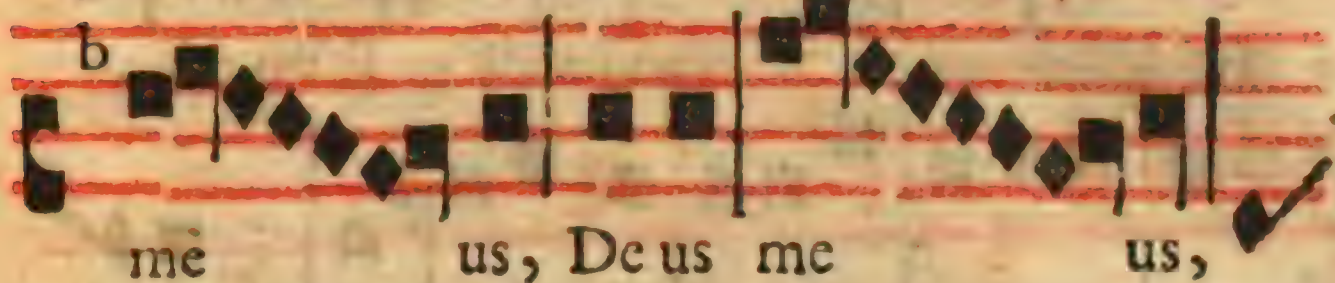 b
mè us, Deus me us,